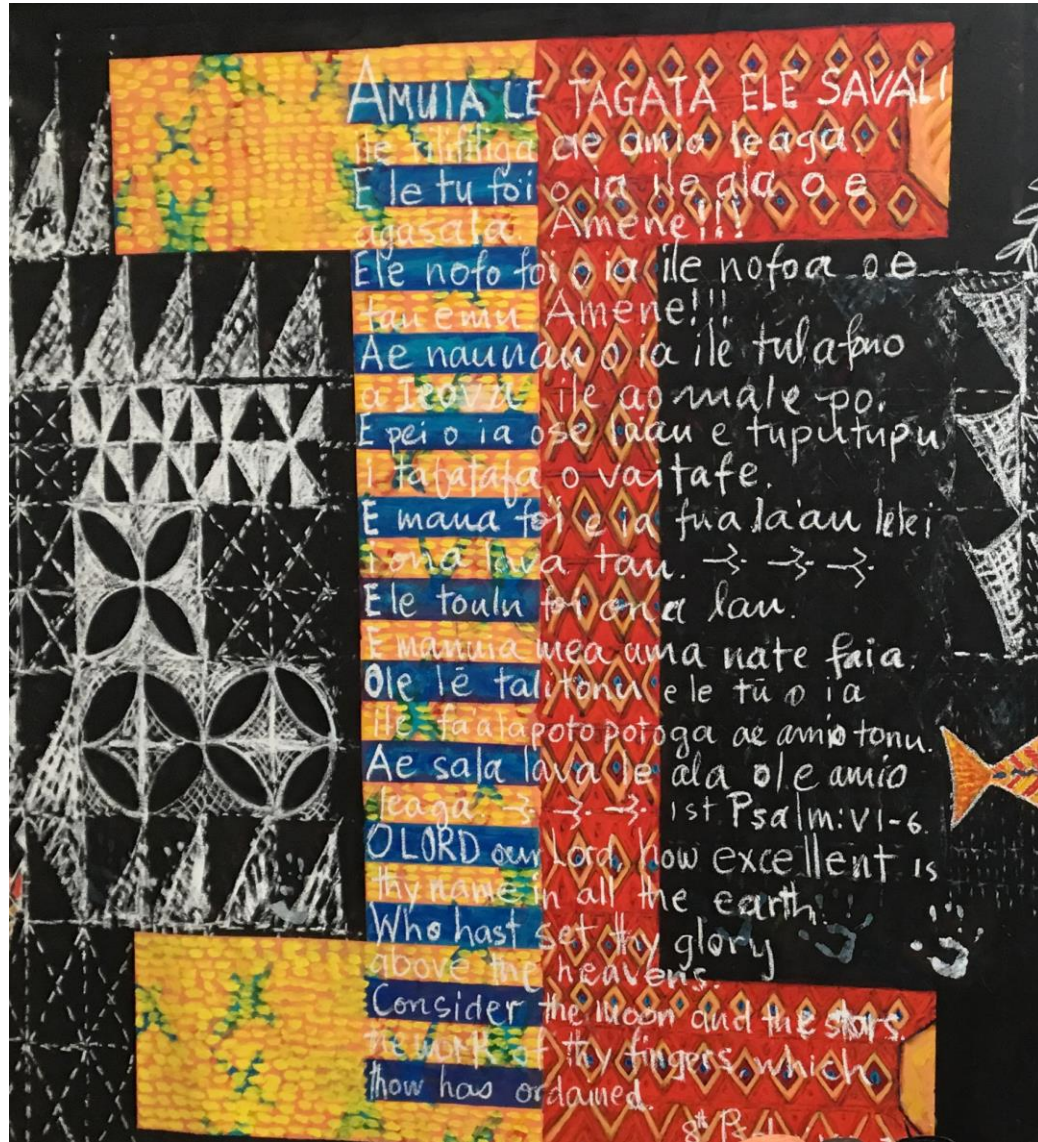 AMUIA LE TAGATA ELE SAVALI
ile filifiliga ae amio leaga.
E le tu foi o ia ile ala o e
agasala. Amene!!!
Ele nofo foi o ia ile nofoa o e
tau emu Amene!!!
Ae naunau o ia ile tulafono
a Ieova ile ao male po.
E pei o ia ose laau e tuputupu
i tafatafa o vaitafe.
E maua foi e ia fua la'au lelei
i ona lava tau.
Ele toulu foi ona lau.
E manuia mea uma nate faia.
Ole lē talitonu e le tū o ia
ile fa'alapotopotoga ae amio tonu.
Ae sala lava le ala ole amio
leaga. 1st Psalm: V1-6.
O LORD our Lord, how excellent is
thy name in all the earth.
Who hast set thy glory
above the heavens.
Consider the moon and the stars.
The work of thy fingers, which
thow has ordained.
8th